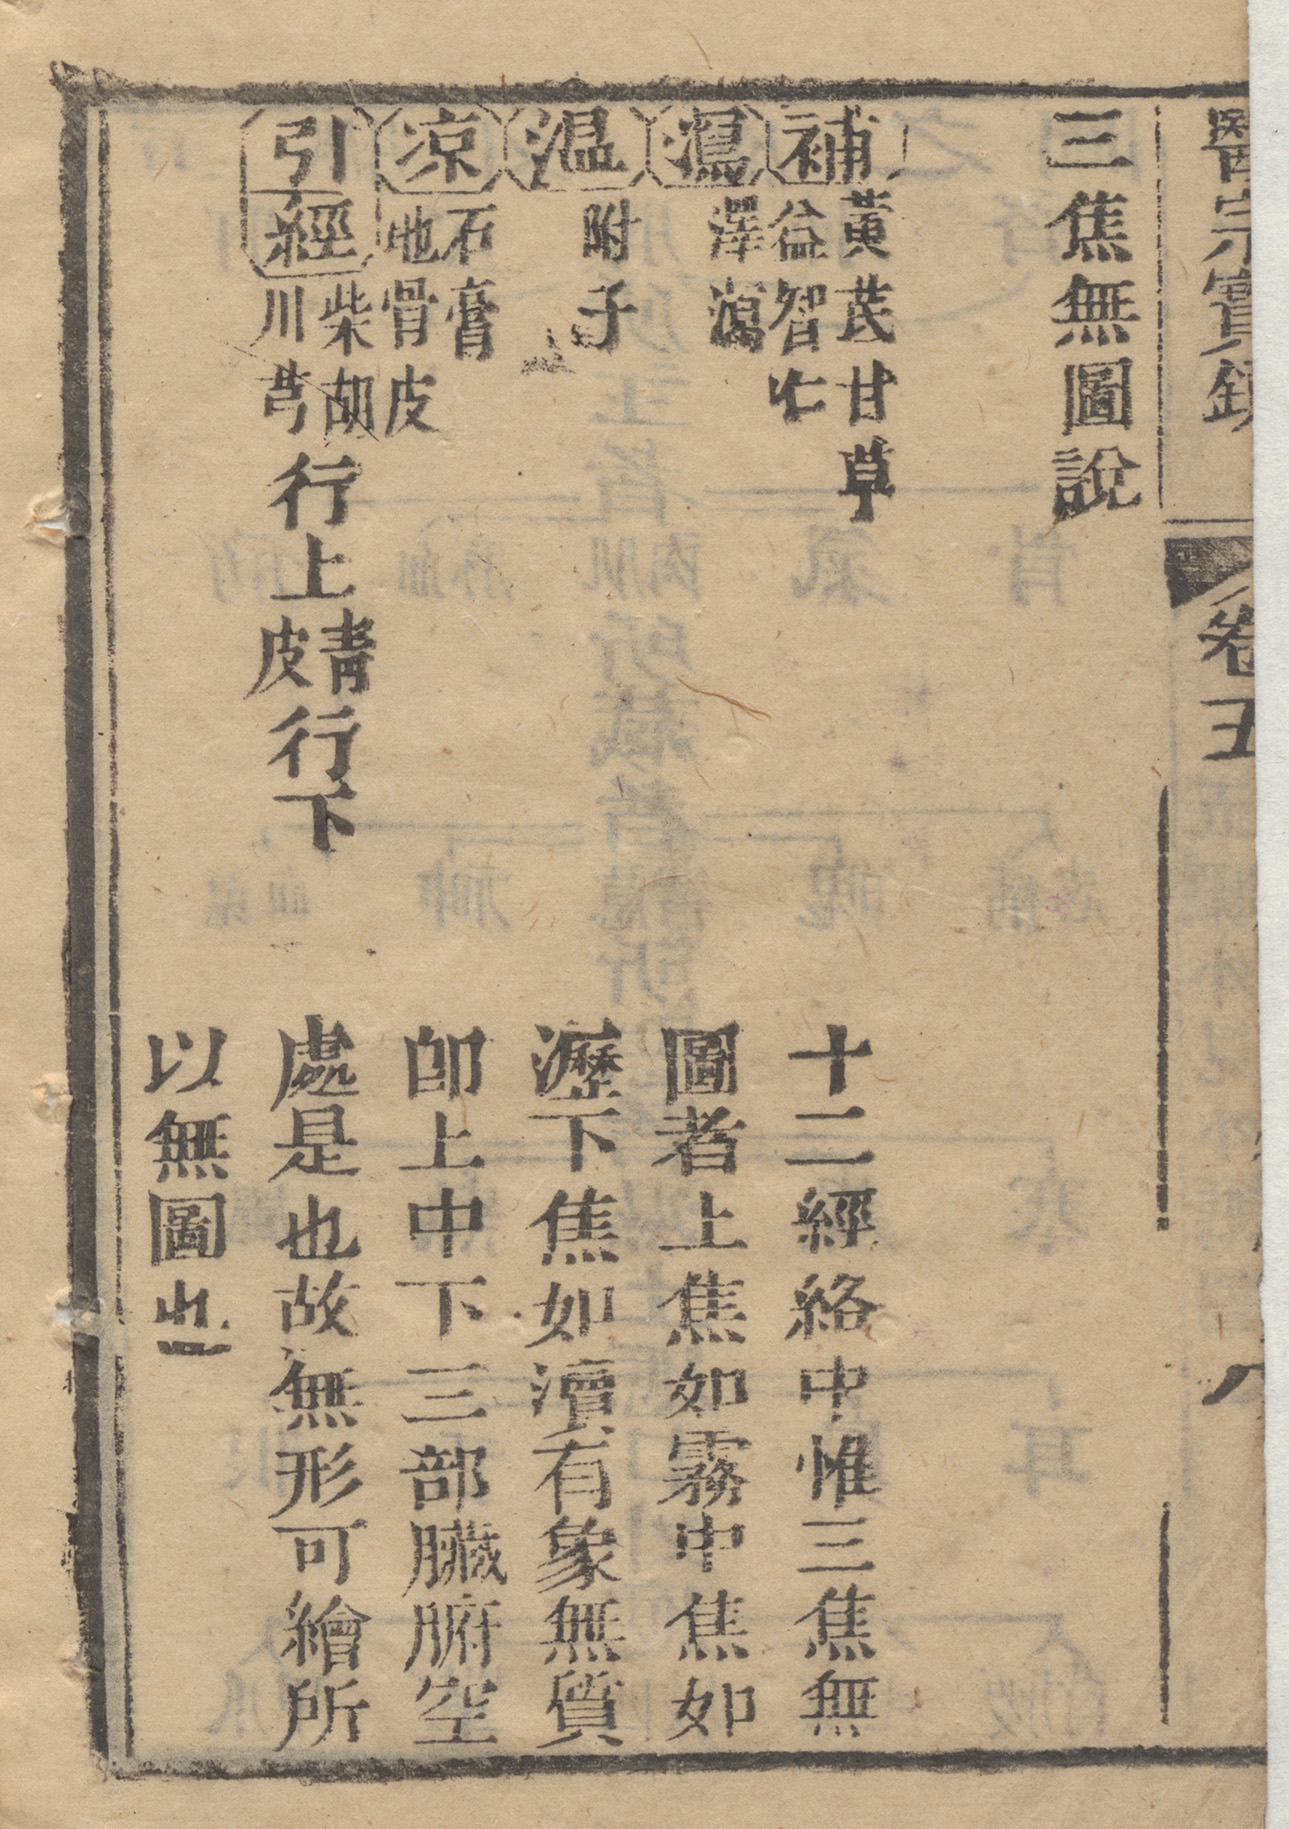 醫宗寶鏡 卷五 八
三焦無圖說
補 黃芪甘草
益智仁
瀉 澤瀉
温 附子
凉 石膏
地骨皮
引經 柴胡
川芎
行上
青
皮
行下
十二經絡中惟三焦無
圖者上焦如霧中焦如
瀝下焦如瀆有象無質
即上中下三部臟腑空
處是也故無形可繪所
以無圖也